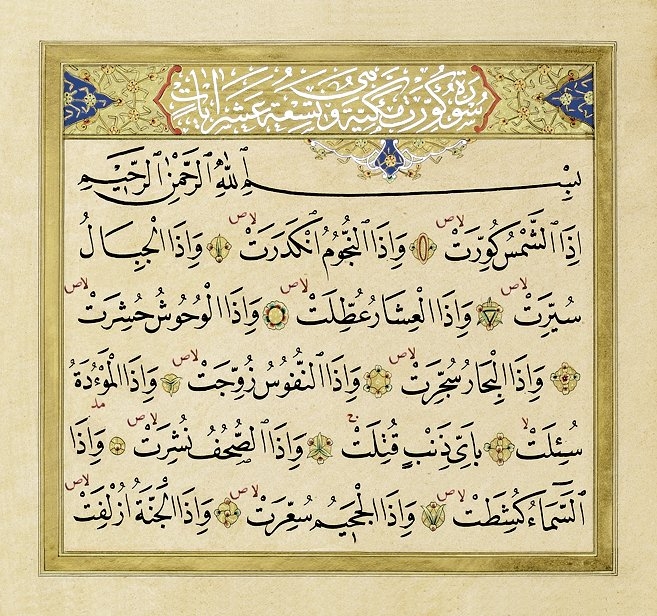 سُورَةُ كُوِّرَتْ مَكِّيَّةٌ وَهِيَ تِسْعَةُ عَشَرَ اٰيَاتٍ
بِسْمِ ٱللّٰهِ ٱلرَّحْمٰنِ ٱلرَّحِيمِ
اِذَا ٱلشَّمْسُ كُوِّرَتْ لاص وَاِذَا ٱلنُّجُومُ ٱنْكَدَرَتْ لاص وَاِذَا ٱلْجِبَالُ
سُيِّرَتْ لاص وَاِذَا ٱلْعِشَارُ عُطِّلَتْ لاص وَاِذَا ٱلْوُحُوشُ حُشِرَتْ لاص
وَاِذَا ٱلْبِحَارُ سُجِّرَتْ لاص وَاِذَا ٱلنُّفُوسُ زُوِّجَتْ لاص وَاِذَا ٱلْمَوْءُدَةُ
سُئِلَتْ لا بِاَىِّ ذَنْبٍ قُتِلَتْ ج وَاِذَا ٱلصُّحُفُ نُشِرَتْ لاص وَاِذَا مد
ٱلسَّمَاءُ كُشِطَتْ لاص وَاِذَا ٱلْجَحِيمُ سُعِّرَتْ لاص وَاِذَا ٱلْجَنَّةُ اُزْلِفَتْ لاص